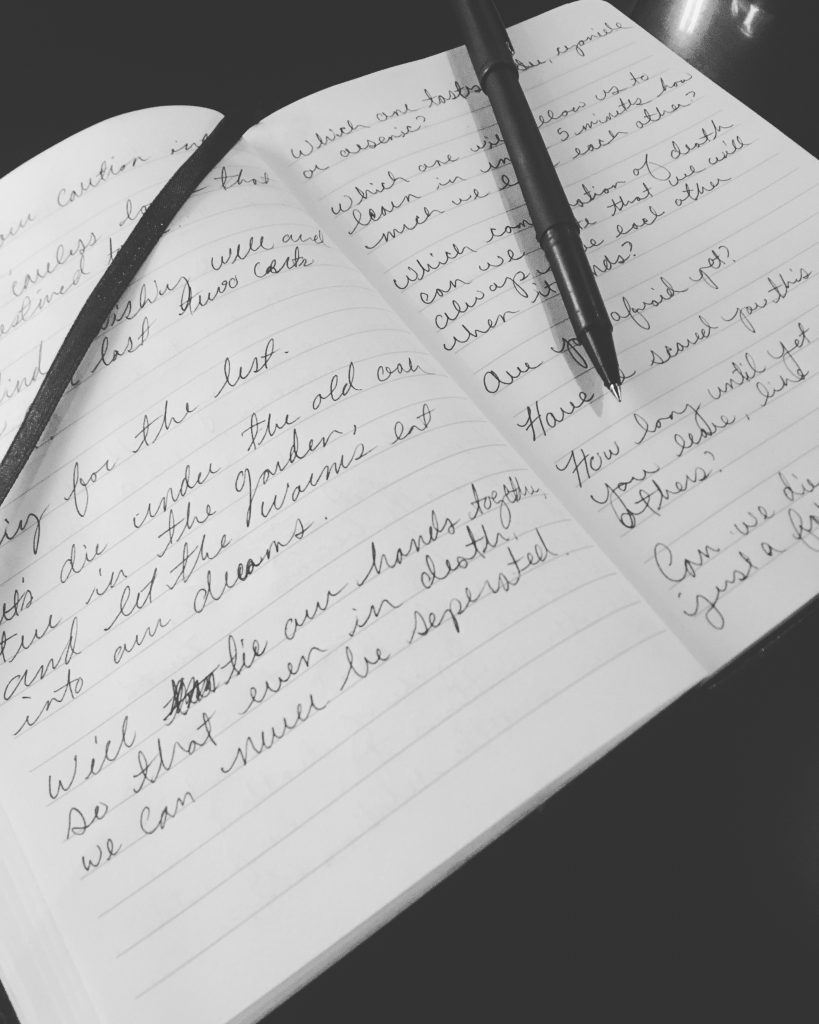 our caution in
careless, love that
destined to be.
find wishing well and
last two cents
for the last.
let's die under the old oak
tree in the garden,
and let the worms eat
into our dreams.
We'll tie our hands together,
so that even in death,
we can never be seperated.
Which one tastes
or arsenic?
Which one will allow us to
learn in 5 minutes how
much we each other?
Which combination of death
can we that we will
always each other
when it ends?
Are you afraid yet?
Have scared you this
How long until yet
you leave, like
others?
Can we die
just a